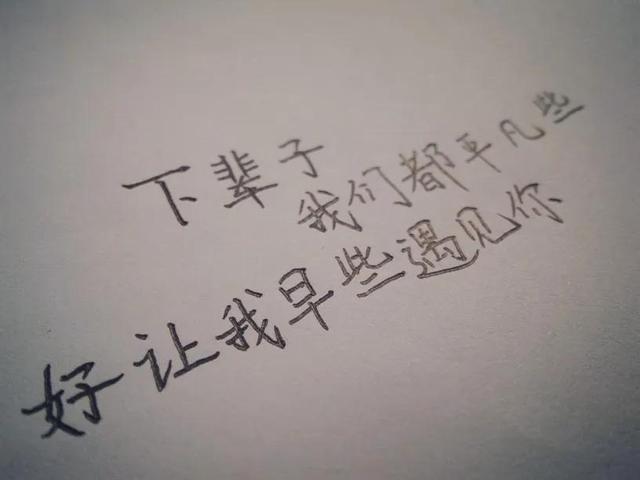 下辈子
我们都平凡些
好让我早些遇见你